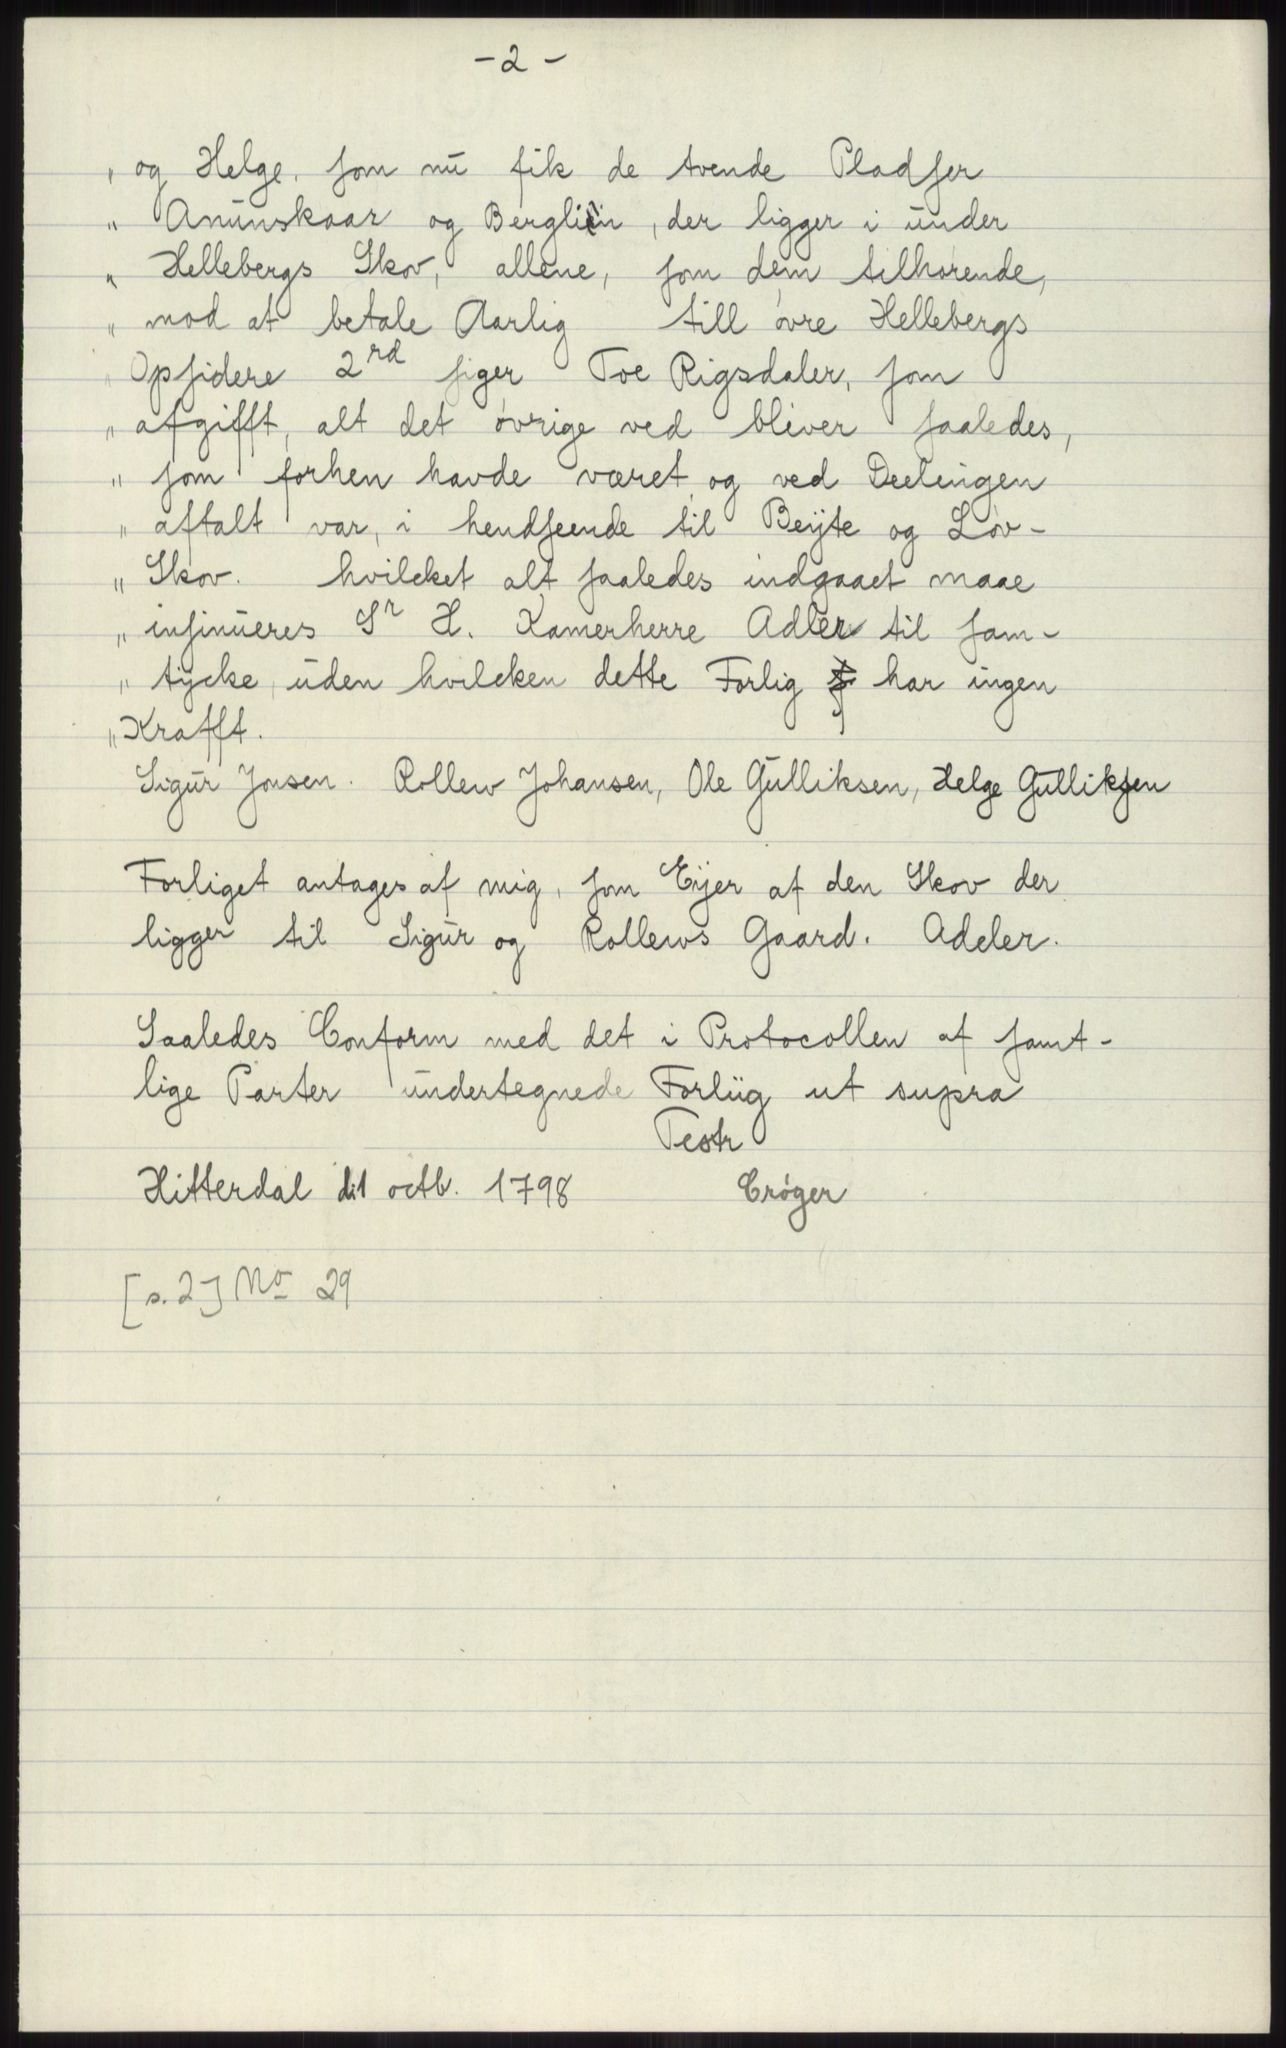 - 2 -
„ og Helge, som nu fik de tvende Pladser
„ Anunskaar og Berglien, der ligger i under
„ Hellebergs Skov, allene, som dem tilhørende,
„ mod at betale Aarlig till øvre Hellebergs
„ Opsidere 2rd siger Toe Rigsdaler, som
„ afgifft, alt det øvrige ved bliver saaledes,
„ som forhen havde været og ved Deelingen
„ aftalt var, i hendseende til Beyte og Løv-
„ Skov. hvilcket alt saaledes indgaaet maae
„ insinueres Sr H. Kamerherre Adler til sam-
„ tycke, uden hvilcken dette Forlig har ingen
„ Krafft.
Sigur Jonsen. Rollew Johansen, Ole Gulliksen, Helge Gulliksen
Forliget antages af mig, som Eyer af den Skov der
ligger til Sigur og Rollews Gaard. Adeler.
Saaledes Conform med det i Protocollen af samt-
lige Parter undertegnede Forliig ut supra
Testr
Hitterdal d:1 octb. 1798 Crøger
[s. 2] No 29